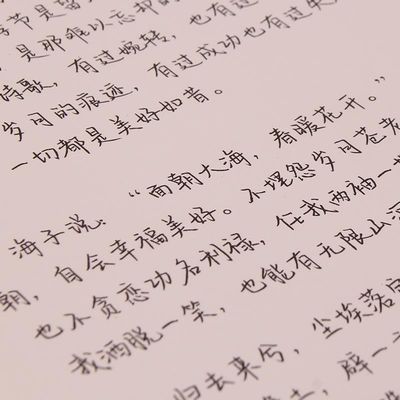 是那难以忘却的
诗歌，有过婉转，也有过
岁月的痕迹，有过成功也有过失
一切都是美好如昔。
海子说：“面朝大海，春暖花开。”
朝，自会幸福美好。不埋怨岁月苍老
也不贪恋功名利禄，任我两袖一
我洒脱一笑，也能有无限山河
归去来兮，尘埃落
土，辟一